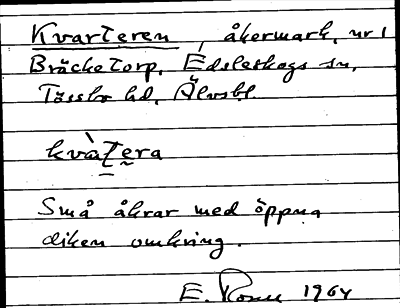 Kvarteren, åkermark, nr 1
Bräcketorp, Edsleskogs sn,
Tössbo hd, Älvsbl.
kvàtera
Små åkrar med öppna
diken omkring.
E. 1964